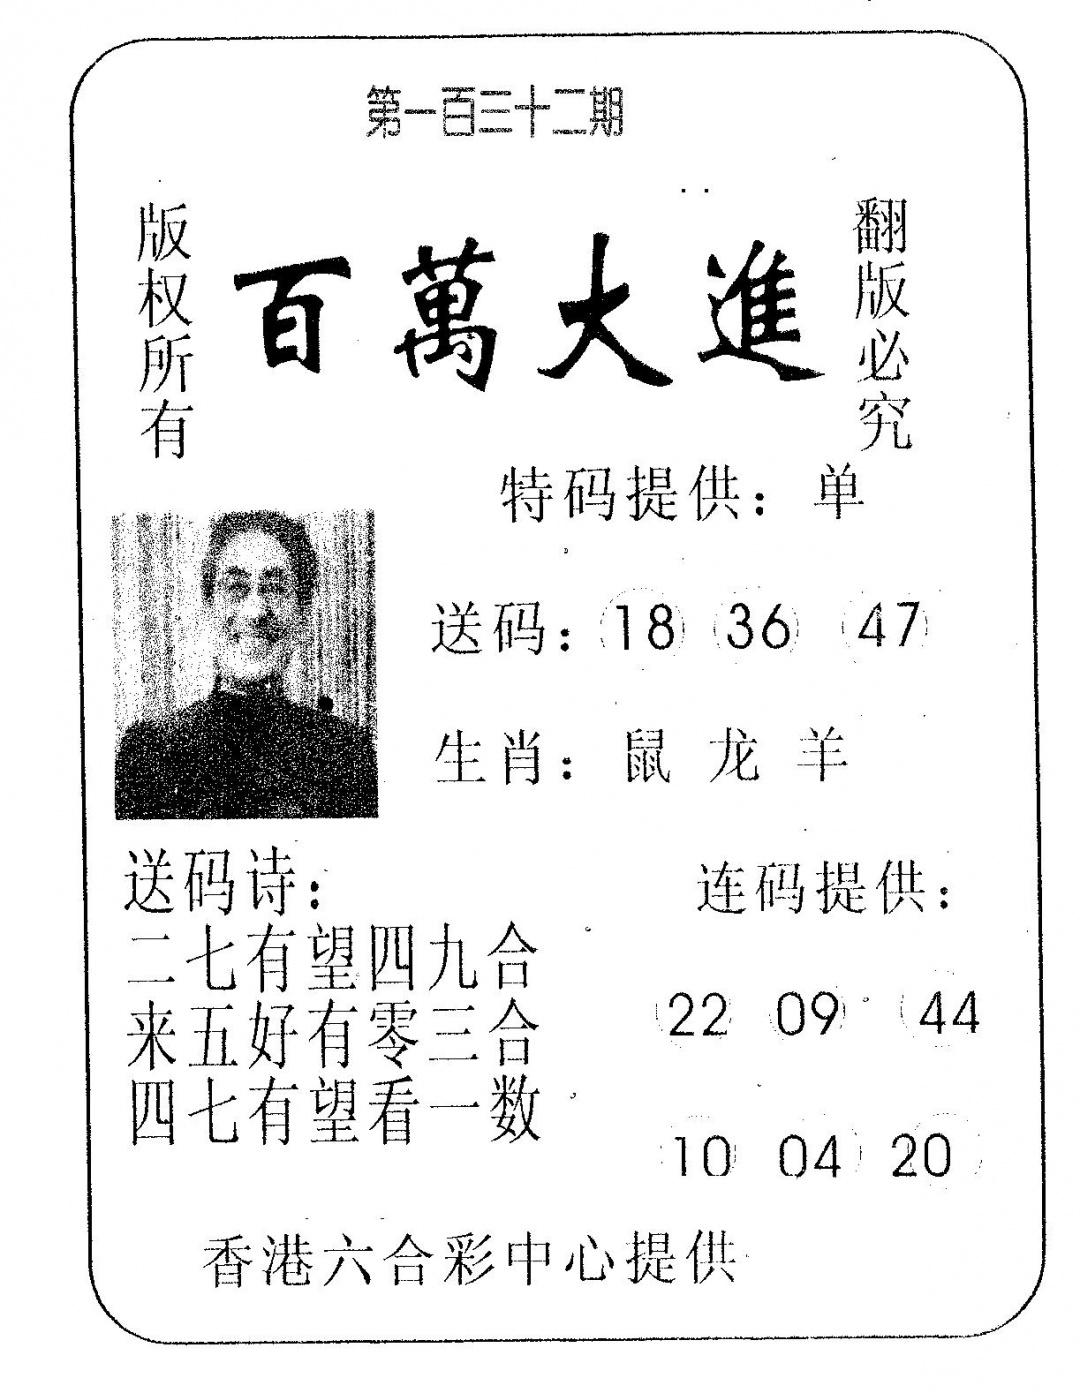 第一百三十二期
版权所有
百萬大進
翻版必究
特码提供：单
送码：18 36 47
生肖：鼠 龙 羊
送码诗：
二七有望四九合
来五好有零三合
四七有望看一数
连码提供：
22 09 44
10 04 20
香港六合彩中心提供